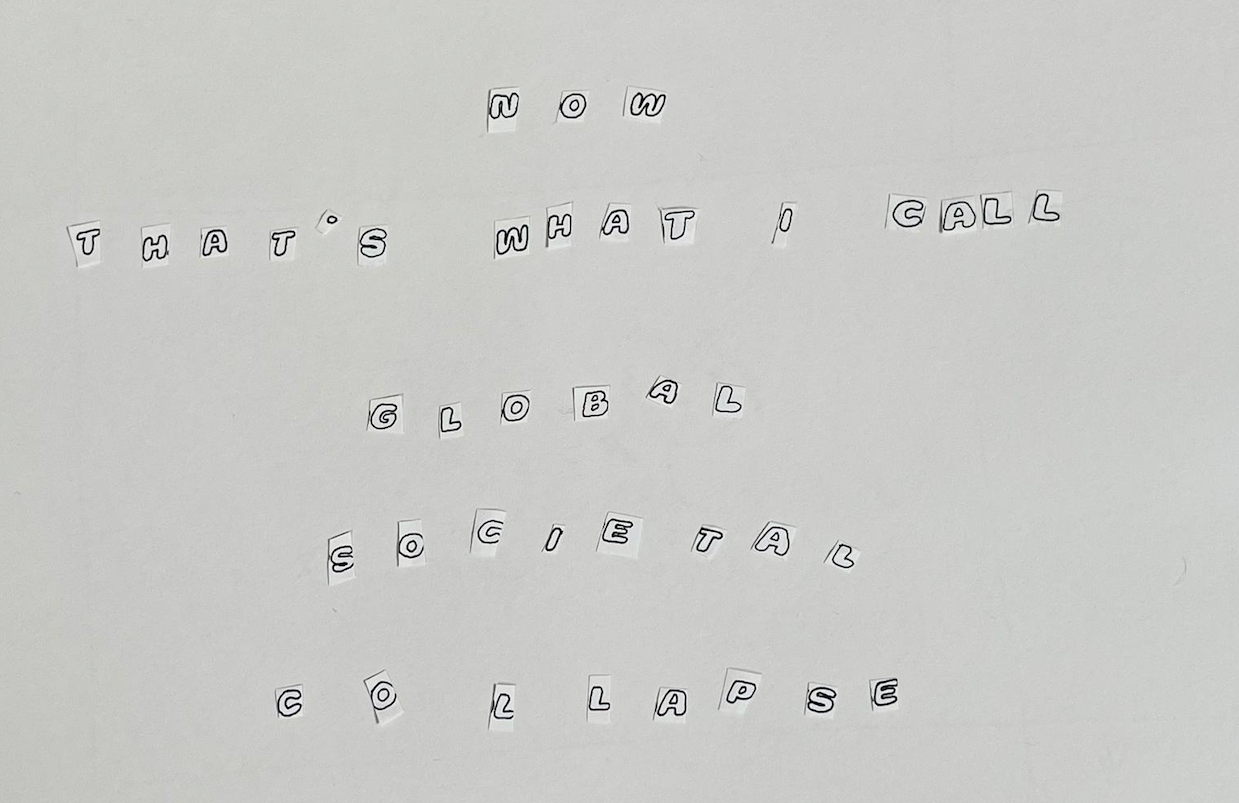 NOW
THAT'S WHAT I CALL
GLOBAL
SOCIETAL
COLLAPSE